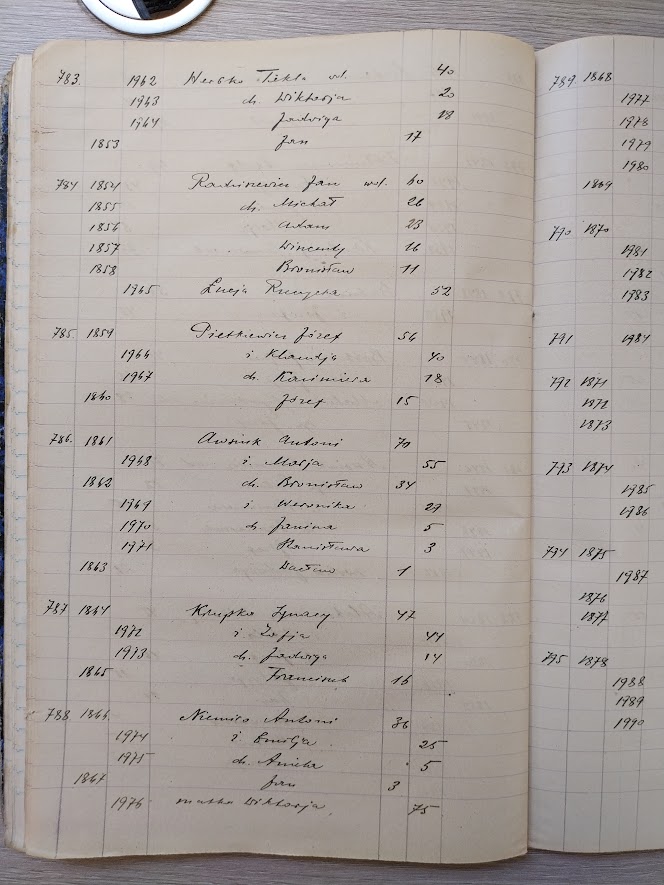 783. 1962 Werbko Tekla wd. 40
1963 ch. Wiktorja 20
1964 Jadwiga 18
1853 Jan 17
784 1854 Radziewicz Jan wd. 60
1855 ch. Michał 26
1856 Adam 23
1857 Wincenty 16
1858 Bronisław 11
1965 Łucja 52
785. 1859 Pietkiewicz Józef 56
1966 ż. Klaudja 40
1967 ch. Kazimiera 18
1860 Józef 15
786. 1861 Antoni 70
1968 ż. Marja 55
1862 ch. Bronisław 34
1969 ż. Weronika 29
1970 ch. Janina 5
1971 Stanisława 3
1863 Wacław 1
787 1864 Krupko Ignacy 47
1972 ż. Zofja 44
1973 ch. Jadwiga 14
1865 Franciszek 16
788 1866 Niemiro Antoni 36
1974 ż. Emilja 25
1975 ch. Aniela 5
1867 Jan 3
1976 matka Wiktorja 75
789 1868
1977
1978
1979
1980
1869
790 1870
1981
1982
1983
791 1984
792 1871
1872
1873
793 1874
1985
1986
794 1875
1987
1876
1877
795 1878
1988
1989
1990